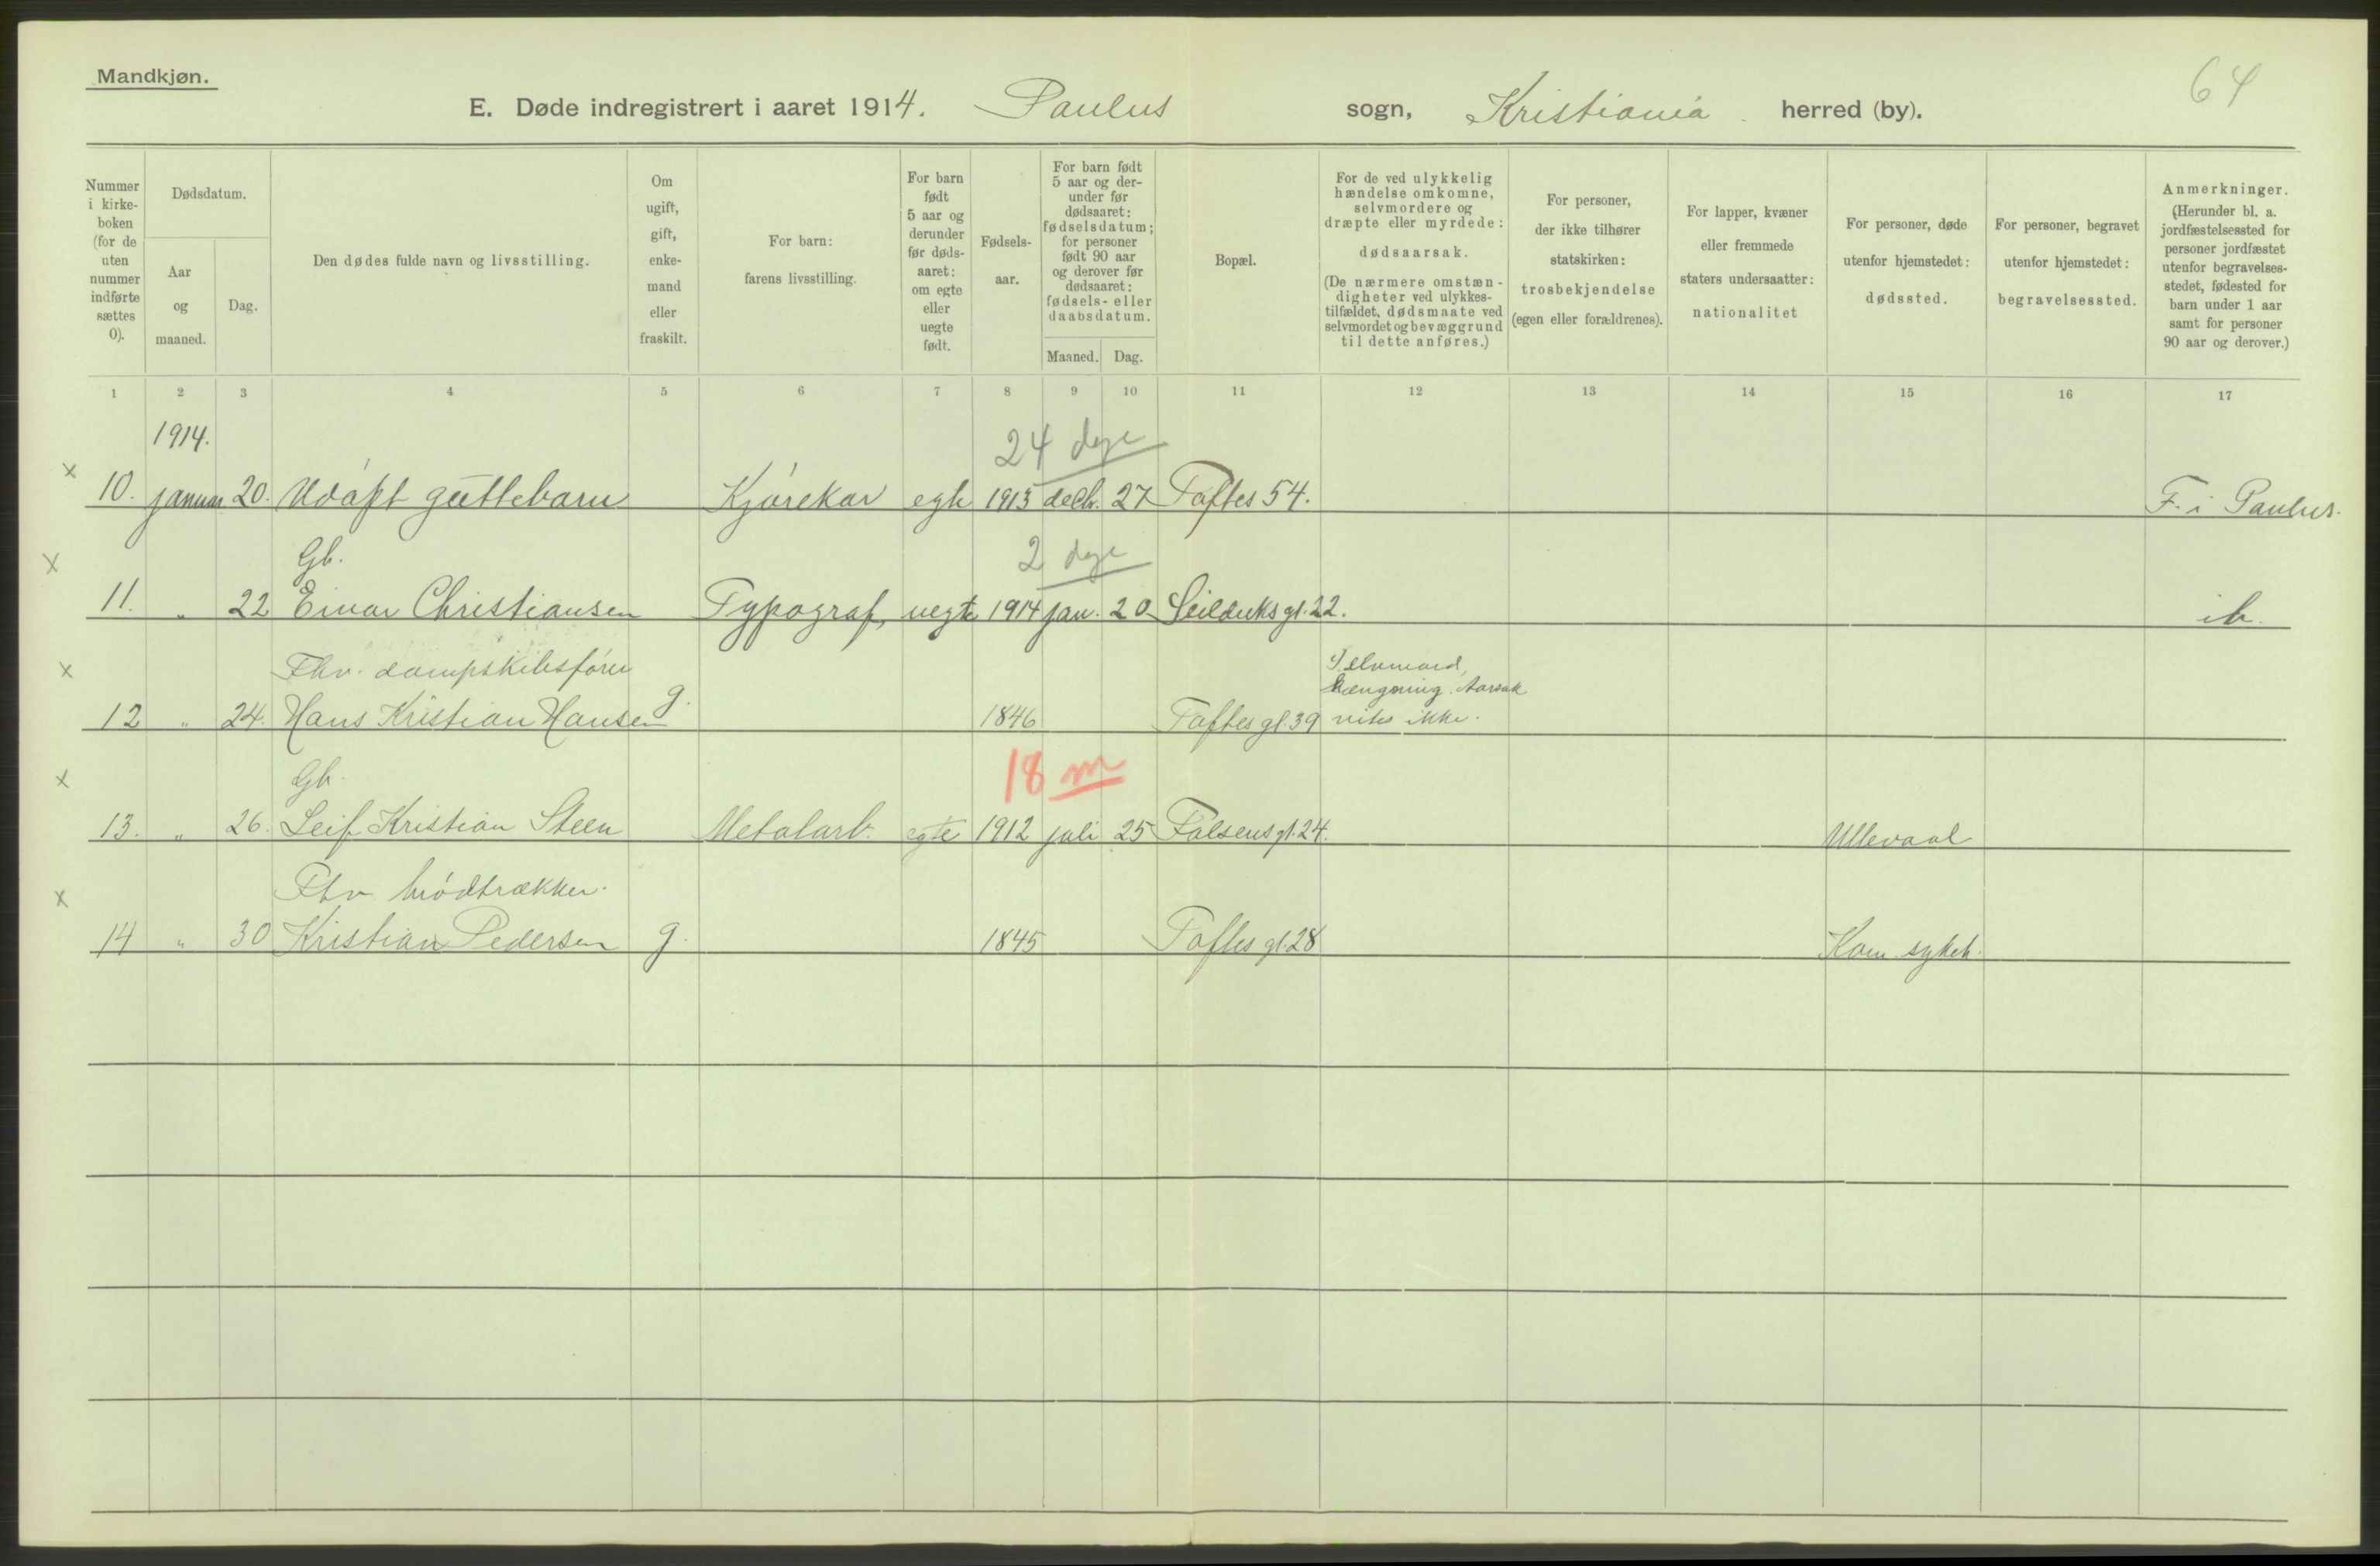 Mandkjøn.
64
E. Døde indregistrert i aaret 1914. Paulus sogn, Kristiania herred (by).
Nummer i kirke-boken (for de uten nummer indførte sættes 0).
Dødsdatum.
Aar og maaned.
Dag.
Den dødes fulde navn og livsstilling.
Om ugift, gift, enke-mand eller fraskilt.
For barn: farens livsstilling.
For barn født 5 aar og derunder før døds-aaret: om egte eller uegte født.
Fødsels-aar.
For barn født 5 aar og der-under før dødsaaret: fødselsdatum; for personer født 90 aar og derover før dødsaaret: fødsels- eller daabsdatum.
Maaned. Dag.
Bopæl.
For de ved ulykkelig hændelse omkomne, selvmordere og dræpte eller myrdede: dødsaarsak.
(De nærmere omstæn-digheter ved ulykkes-tilfældet, dødsmaate ved selvmordet og bevæggrund til dette anføres.)
For personer, der ikke tilhører statskirken: trosbekjendelse (egen eller forældrenes).
For lapper, kvæner eller fremmede staters undersaatter: nationalitet
For personer, døde utenfor hjemstedet: dødssted.
For personer, begravet utenfor hjemstedet: begravelsessted.
Anmerkninger. (Herunder bl. a. jordfæstelsessted for personer jordfæstet utenfor begravelses-stedet, fødested for barn under 1 aar samt for personer 90 aar og derover.)
1 2 3 4 5 6 7 8 9 10 11 12 13 14 15 16 17
1914.
24 dage
x 10. januar 20. Udøpt guttebarn Kjørekar egte 1913 decbr. 27 Toftes 54. F. i Paulus.
Gb. 2 dage
x 11. " 22 Einar Christiansen Typograf, uegte 1914 jan. 20 Seilduksgt. 22. ib.
Fhv. dampskibsfører Selvmord,
hængning. Aarsak
x 12 " 24. Hans Kristian Hansen g. 1846 Toftes gt. 39 vites ikke.
Gb. 18 m
x 13. " 26. Leif Kristian Steen Metalarb. egte 1912 juli 25 Falsens gt. 24. Ullevaal
Fhv brødtrækker.
x 14 " 30 Kristian Pedersen g. 1845 Toftes gt. 28 Kom. sykeh.